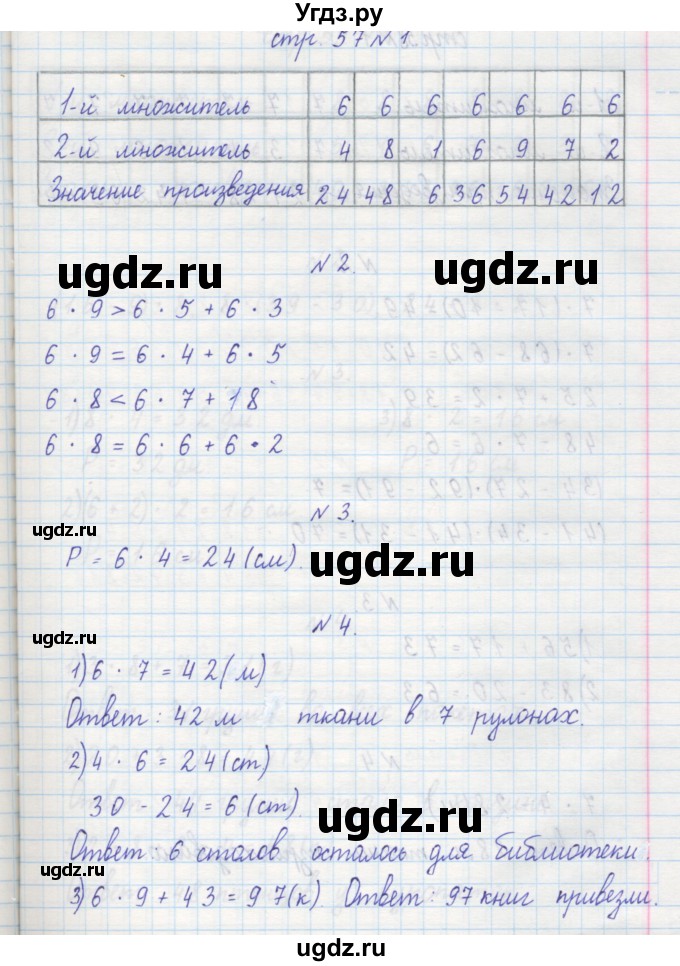 Угдз.ру
стр. 57 №1
1-й множитель 6 6 6 6 6 6 6
2-й множитель 4 8 1 6 9 7 2
Значение произведения 24 48 6 36 54 42 12
№2.
ugdz.ru ugdz.ru
6 · 9 > 6 · 5 + 6 · 3
6 · 9 = 6 · 4 + 6 · 5
6 · 8 < 6 · 7 + 18
6 · 8 = 6 · 6 + 6 · 2
№3.
ugdz.ru
P = 6 · 4 = 24 (см).
ugdz.ru
№4.
ugdz.ru
1) 6 · 7 = 42 (м)
Ответ: 42 м ткани в 7 рулонах.
2) 4 · 6 = 24 (ст)
30 - 24 = 6 (ст).
ugdz.ru
Ответ 6 столов осталось для библиотеки.
ugdz.ru
3) 6 · 9 + 43 = 97 (к). Ответ: 97 книг привезли.
ugdz.ru